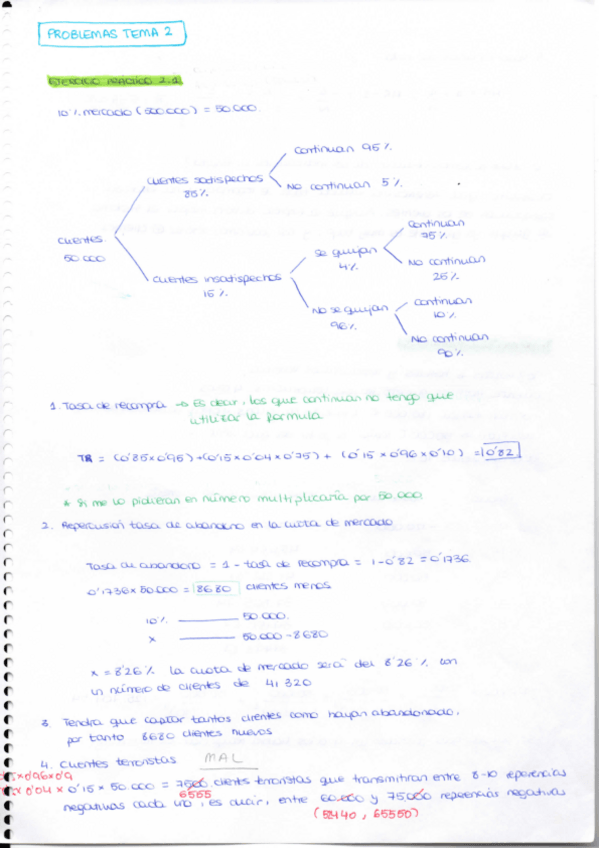 PROBLEMAS TEMA 2
EJERCICIO PRÁCTICO 2.2
10% mercado (500.000) = 50.000.
continuan 95%.
clientes satisfechos
85%
No continuan 5%.
clientes
50.000
continuan
75%
se quejan
4%
No continuan
25%
clientes insatisfechos
15%
continuan
10%
No se quejan
96%
No continuan
90%
1. Tasa de recompra → Es decir, los que continuan no tengo que
utilizar la formula
TR = (0'85x0'95)+(0'15x0'04x0'75) + (0'15x0'96x0'10) = 0'82
* Si me lo pidieran en número multiplicaría por 50.000
2. Repercusión tasa de abandono en la cuota de mercado
Tasa de abandono = 1 - tasa de recompra = 1-0'82 = 0'1736
0'1736x50.000 = 8680 clientes menos
10% 50.000.
x 50.000-8680
x = 8'26% La cuota de mercado será del 8'26% con
un número de clientes de 41.320
3. Tendra que captar tantos clientes como hayan abandonado,
por tanto 8680 clientes nuevos
4. Clientes terroristas MAL
x0'96x0'9
x0'04 x 0'15 x 50.000 = 7500 clients terroristas que transmitiran entre 8-10 referencias
6555
negativas cada uno, es decir, entre 60.000 y 75.000 referencias negativas
(5440, 65550)